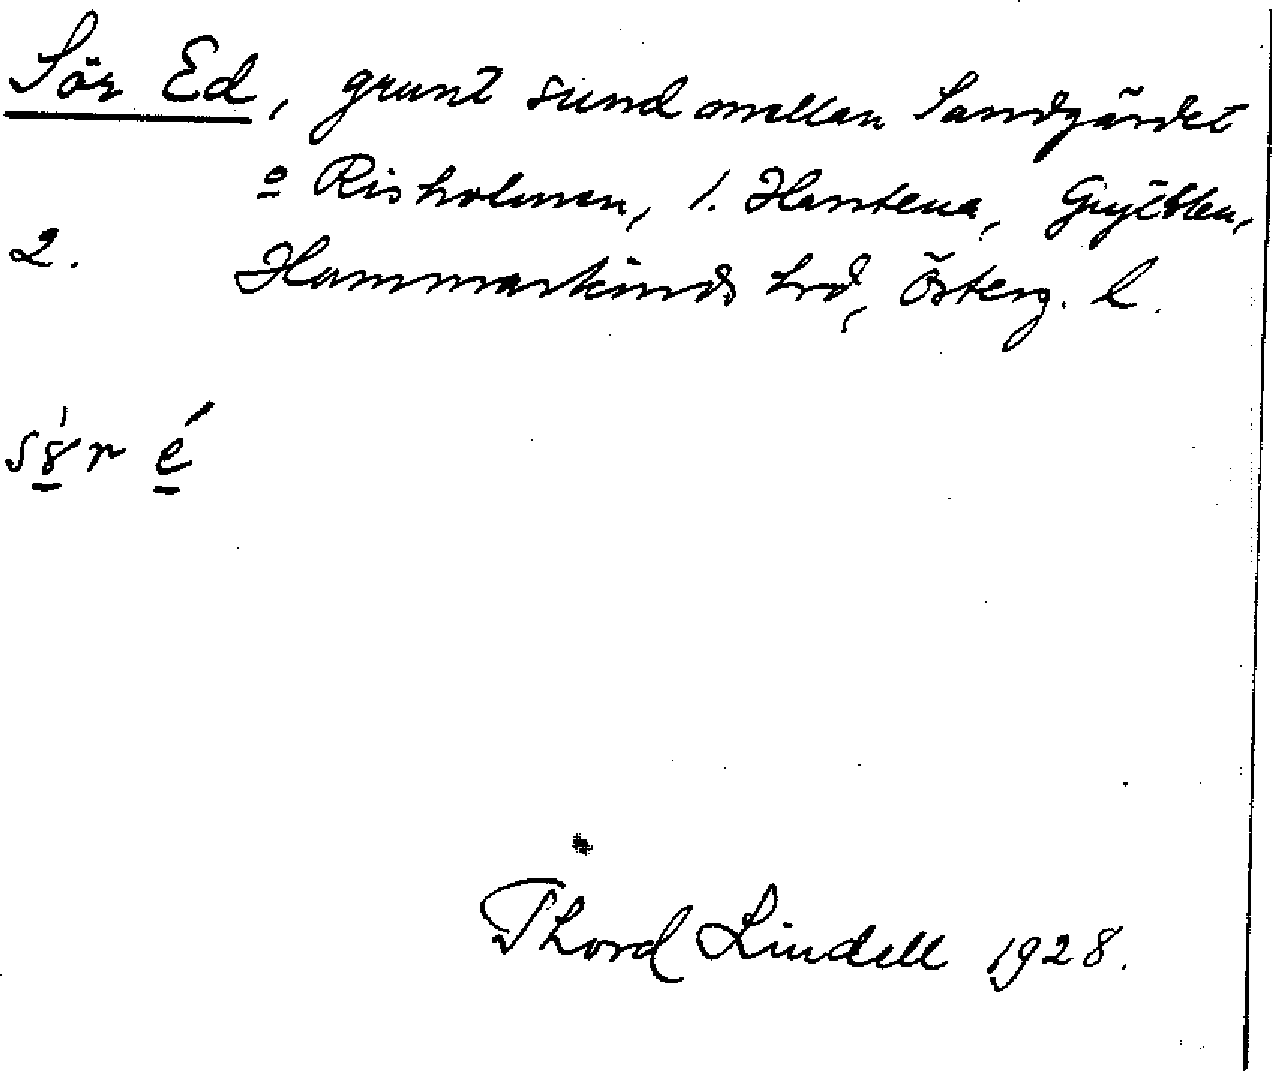 Sör Ed, grunt sund mellan Sandgärdet
o Risholmen, 1. Hentena, Gryt sn,
2. Hammarkinds hrd, Österg. l.
sör é
Thord Lindell 1928.